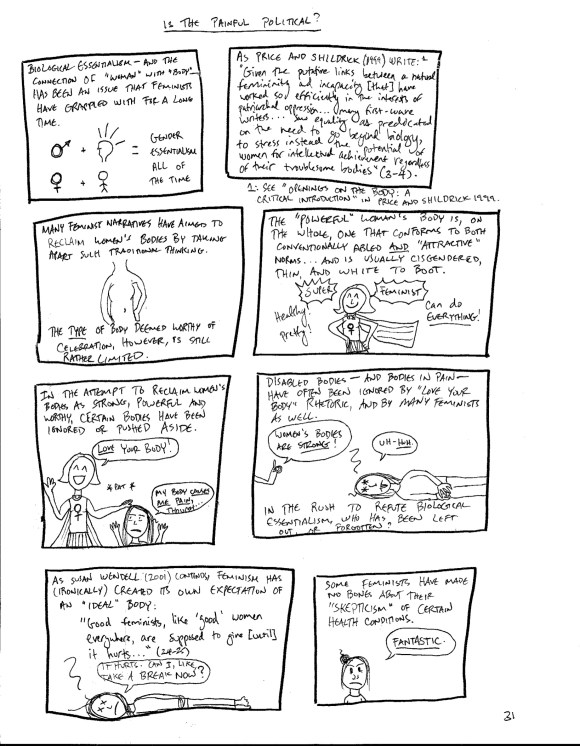 IS THE PAINFUL POLITICAL?
BIOLOGICAL ESSENTIALISM - AND THE
CONNECTION OF "WOMAN" WITH "BODY"-
HAS BEEN AN ISSUE THAT FEMINISTS
HAVE GRAPPLED WITH FOR A LONG
TIME.
♂ + = GENDER
ESSENTIALISM
ALL OF
♀ + THE TIME
AS PRICE AND SHILDRICK (1999) WRITE: 1
"Given the putative links between a natural
femininity and incapacity [that] have
worked so efficiently in the interests of
patriarchal oppression... [many first-wave
writers... saw equality as predicated
on the need to go beyond biology,
to stress instead the potential of
women for intellectual achievement regardless
of their troublesome bodies" (3-4).
1: SEE "OPENINGS ON THE BODY: A
CRITICAL INTRODUCTION" IN PRICE AND SHILDRICK 1999.
MANY FEMINIST NARRATIVES HAVE AIMED TO
RECLAIM WOMEN'S BODIES BY TAKING
APART SUCH TRADITIONAL THINKING.
THE TYPE OF BODY DEEMED WORTHY OF
CELEBRATION, HOWEVER, IS STILL
RATHER LIMITED.
THE "POWERFUL" WOMAN'S BODY IS, ON
THE WHOLE, ONE THAT CONFORMS TO BOTH
CONVENTIONALLY ABLED AND "ATTRACTIVE"
NORMS... AND IS USUALLY CISGENDERED,
THIN, AND WHITE TO BOOT.
SUPER FEMINIST
Healthy!
Pretty!
♀
Can do
EVERYTHING!
IN THE ATTEMPT TO RECLAIM WOMEN'S
BODIES AS STRONG, POWERFUL AND
WORTHY, CERTAIN BODIES HAVE BEEN
IGNORED OR PUSHED ASIDE.
LOVE YOUR BODY!
♀
*PAT*
MY BODY CAUSES
ME PAIN,
THOUGH...
DISABLED BODIES - AND BODIES IN PAIN -
HAVE OFTEN BEEN IGNORED BY "LOVE YOUR
BODY" RHETORIC, AND BY MANY FEMINISTS
AS WELL.
WOMEN'S BODIES
ARE STRONG!
UH-HUH.
IN THE RUSH TO REFUTE BIOLOGICAL
ESSENTIALISM, WHO HAS BEEN LEFT
OUT, OR FORGOTTEN?
AS SUSAN WENDELL (2001) CONTENDS, FEMINISM HAS
(IRONICALLY) CREATED ITS OWN EXPECTATION OF
AN "IDEAL" BODY:
"Good feminists, like 'good' women
everywhere, are supposed to give [until]
it hurts..."
IT HURTS. CAN I, LIKE,
TAKE A BREAK NOW?
SOME FEMINISTS HAVE MADE
NO BONES ABOUT THEIR
"SKEPTICISM" OF CERTAIN
HEALTH CONDITIONS.
FANTASTIC.
31